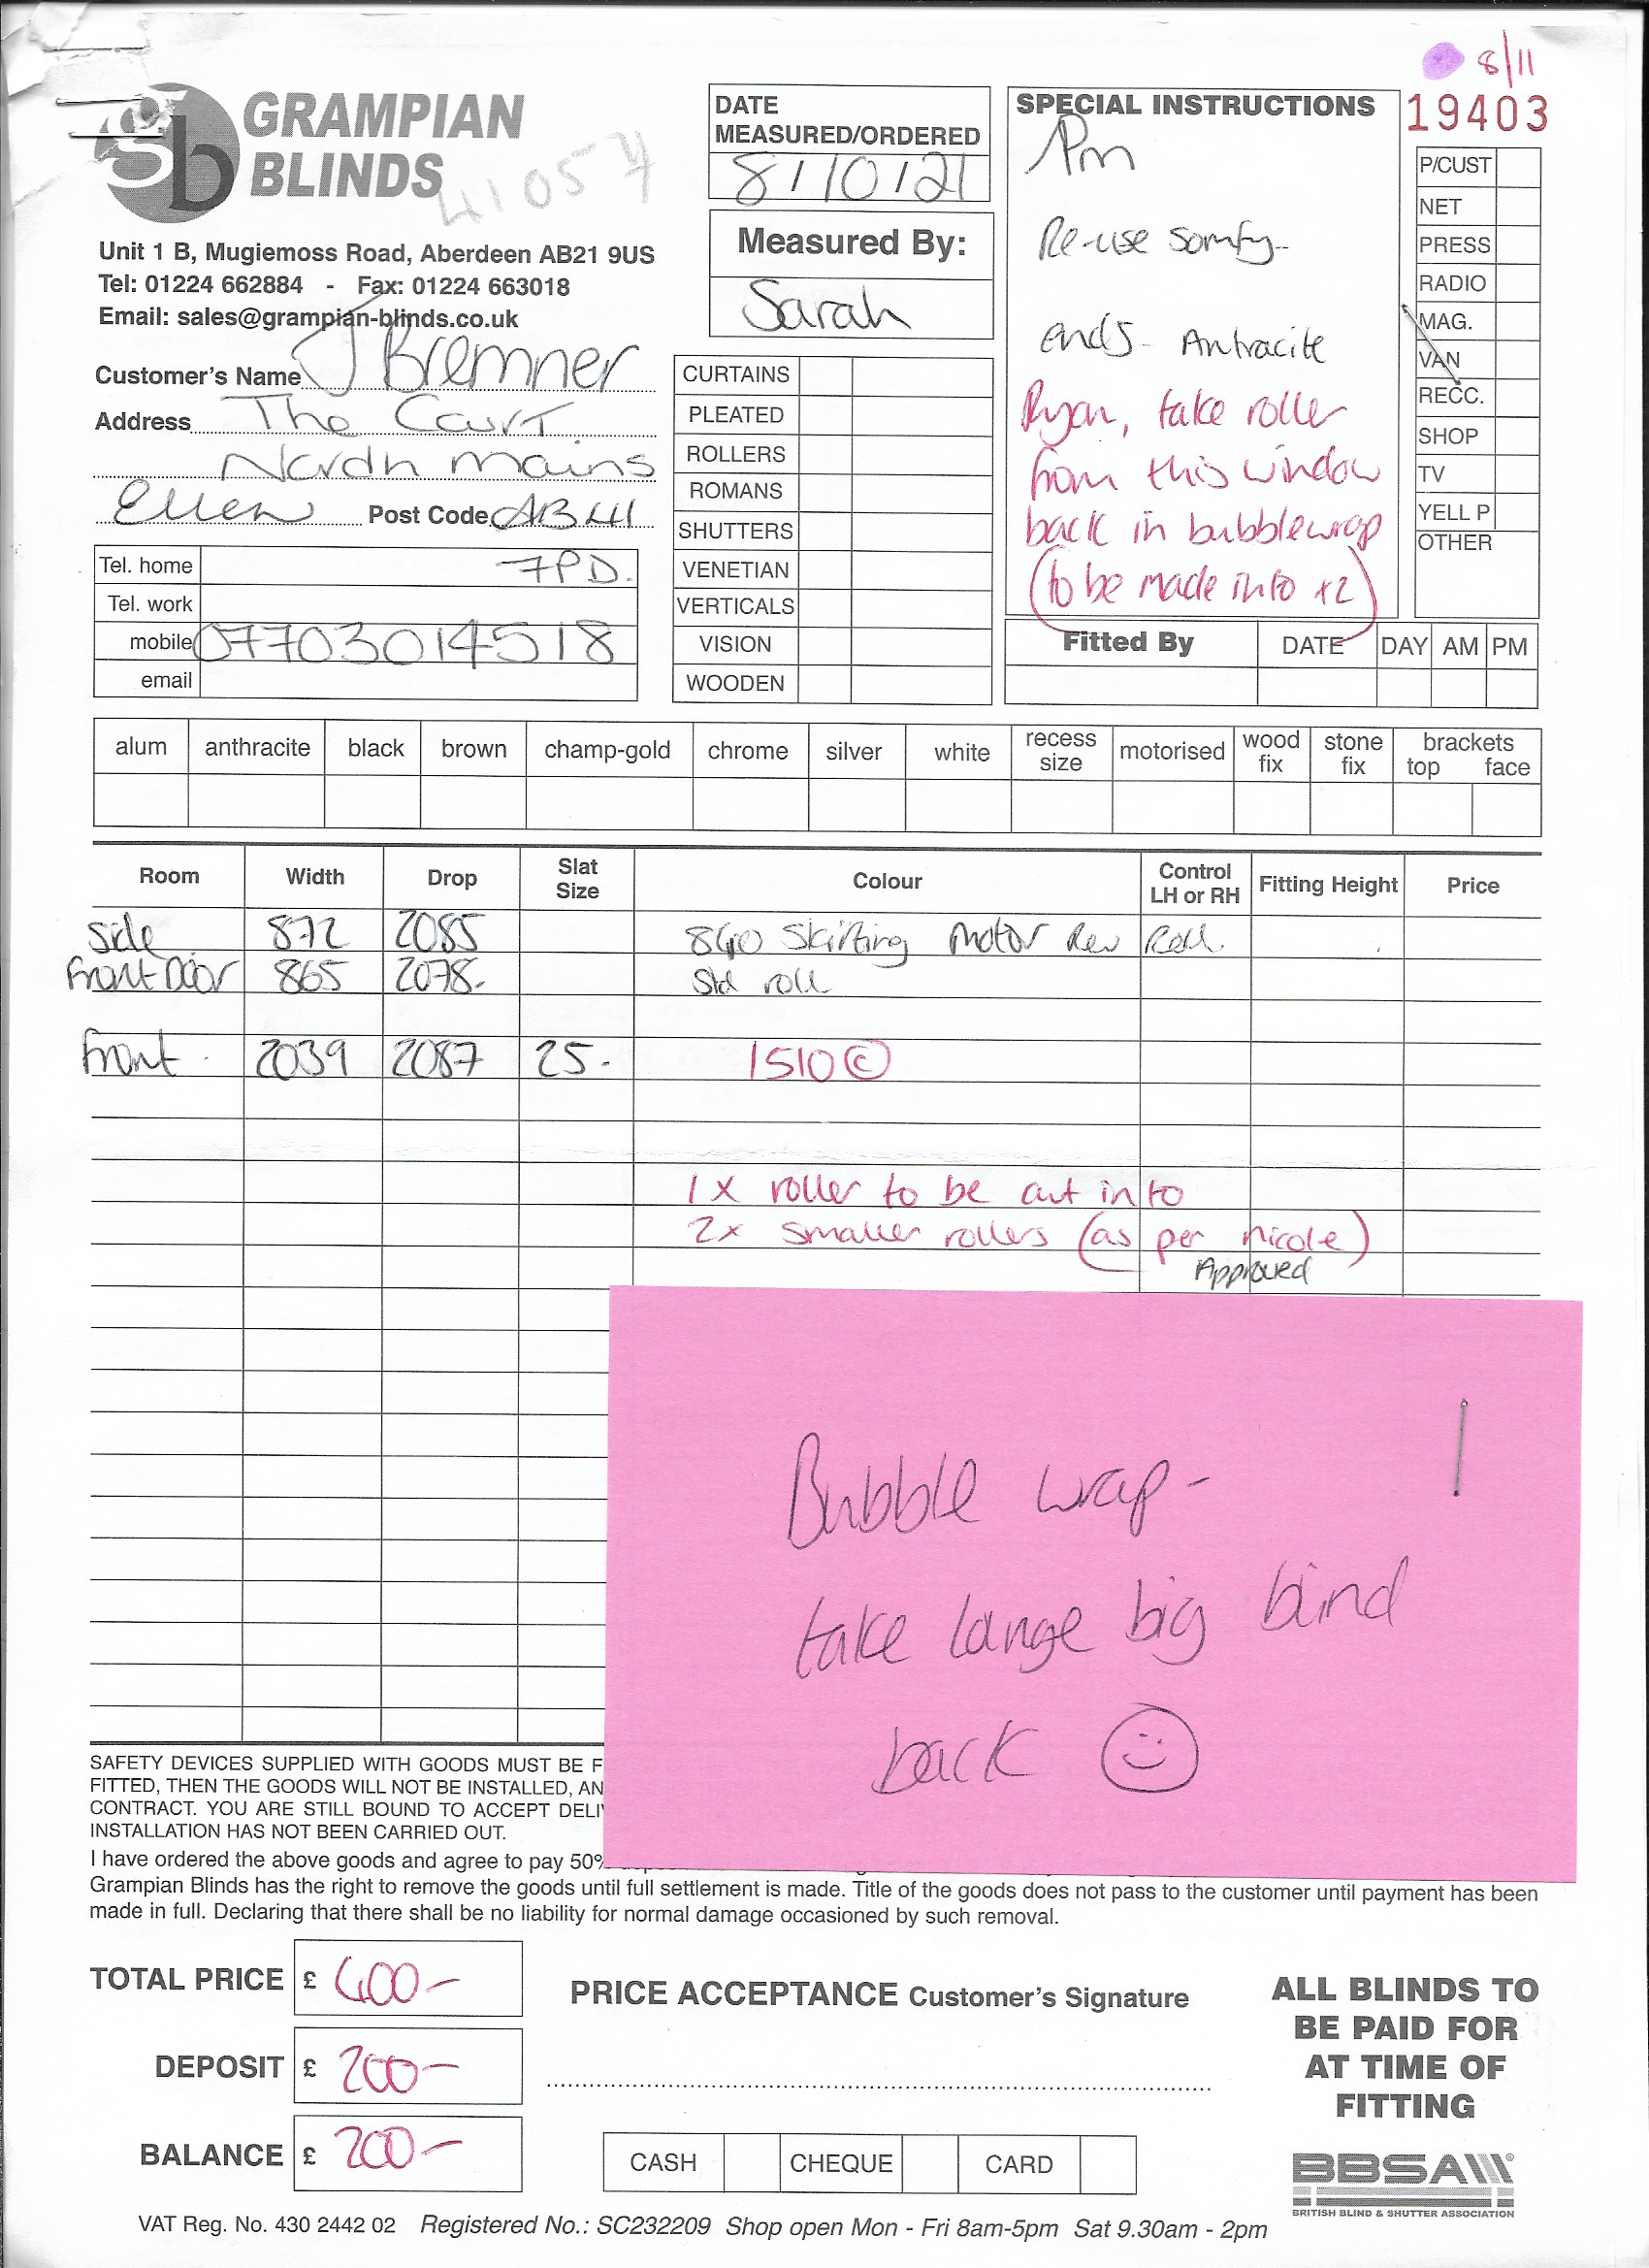 8/11
19403
GRAMPIAN
BLINDS
41057
Unit 1 B, Mugiemoss Road, Aberdeen AB21 9US
Tel: 01224 662884 - Fax: 01224 663018
Email: sales@grampian-blinds.co.uk
Customer's Name J Bremner
Address The Court
North mains
Ellen Post Code AB41
Tel. home 7PD.
Tel. work
mobile 07703014518
email
DATE
MEASURED/ORDERED
8/10/21
Measured By:
Sarah
CURTAINS
PLEATED
ROLLERS
ROMANS
SHUTTERS
VENETIAN
VERTICALS
VISION
WOODEN
SPECIAL INSTRUCTIONS
Pm
Re-use somfy-
ends- Antracite
Ryan, take roller
from this window
back in bubblewrap
(to be made into x2)
P/CUST
NET
PRESS
RADIO
MAG.
VAN
RECC.
SHOP
TV
YELL P
OTHER
Fitted By DATE DAY AM PM
alum anthracite black brown champ-gold chrome silver white recess size motorised wood fix stone fix brackets top face
Room Width Drop Slat Size Colour Control LH or RH Fitting Height Price
Side 872 2085 840 Skirting Motor Rev Roll.
Front Door 865 2078. Std roll
Front. 2039 2087 25. 1510 ©
1x roller to be cut into
2x smaller rollers (as per nicole)
Approved
Bubble wrap-
take large big blind
back
SAFETY DEVICES SUPPLIED WITH GOODS MUST BE F
FITTED, THEN THE GOODS WILL NOT BE INSTALLED, AN
CONTRACT. YOU ARE STILL BOUND TO ACCEPT DELI
INSTALLATION HAS NOT BEEN CARRIED OUT.
I have ordered the above goods and agree to pay 50%
Grampian Blinds has the right to remove the goods until full settlement is made. Title of the goods does not pass to the customer until payment has been
made in full. Declaring that there shall be no liability for normal damage occasioned by such removal.
TOTAL PRICE £ 400-
DEPOSIT £ 200-
BALANCE £ 200-
PRICE ACCEPTANCE Customer's Signature
CASH CHEQUE CARD
ALL BLINDS TO
BE PAID FOR
AT TIME OF
FITTING
BBSA
BRITISH BLIND & SHUTTER ASSOCIATION
VAT Reg. No. 430 2442 02 Registered No.: SC232209 Shop open Mon - Fri 8am-5pm Sat 9.30am - 2pm